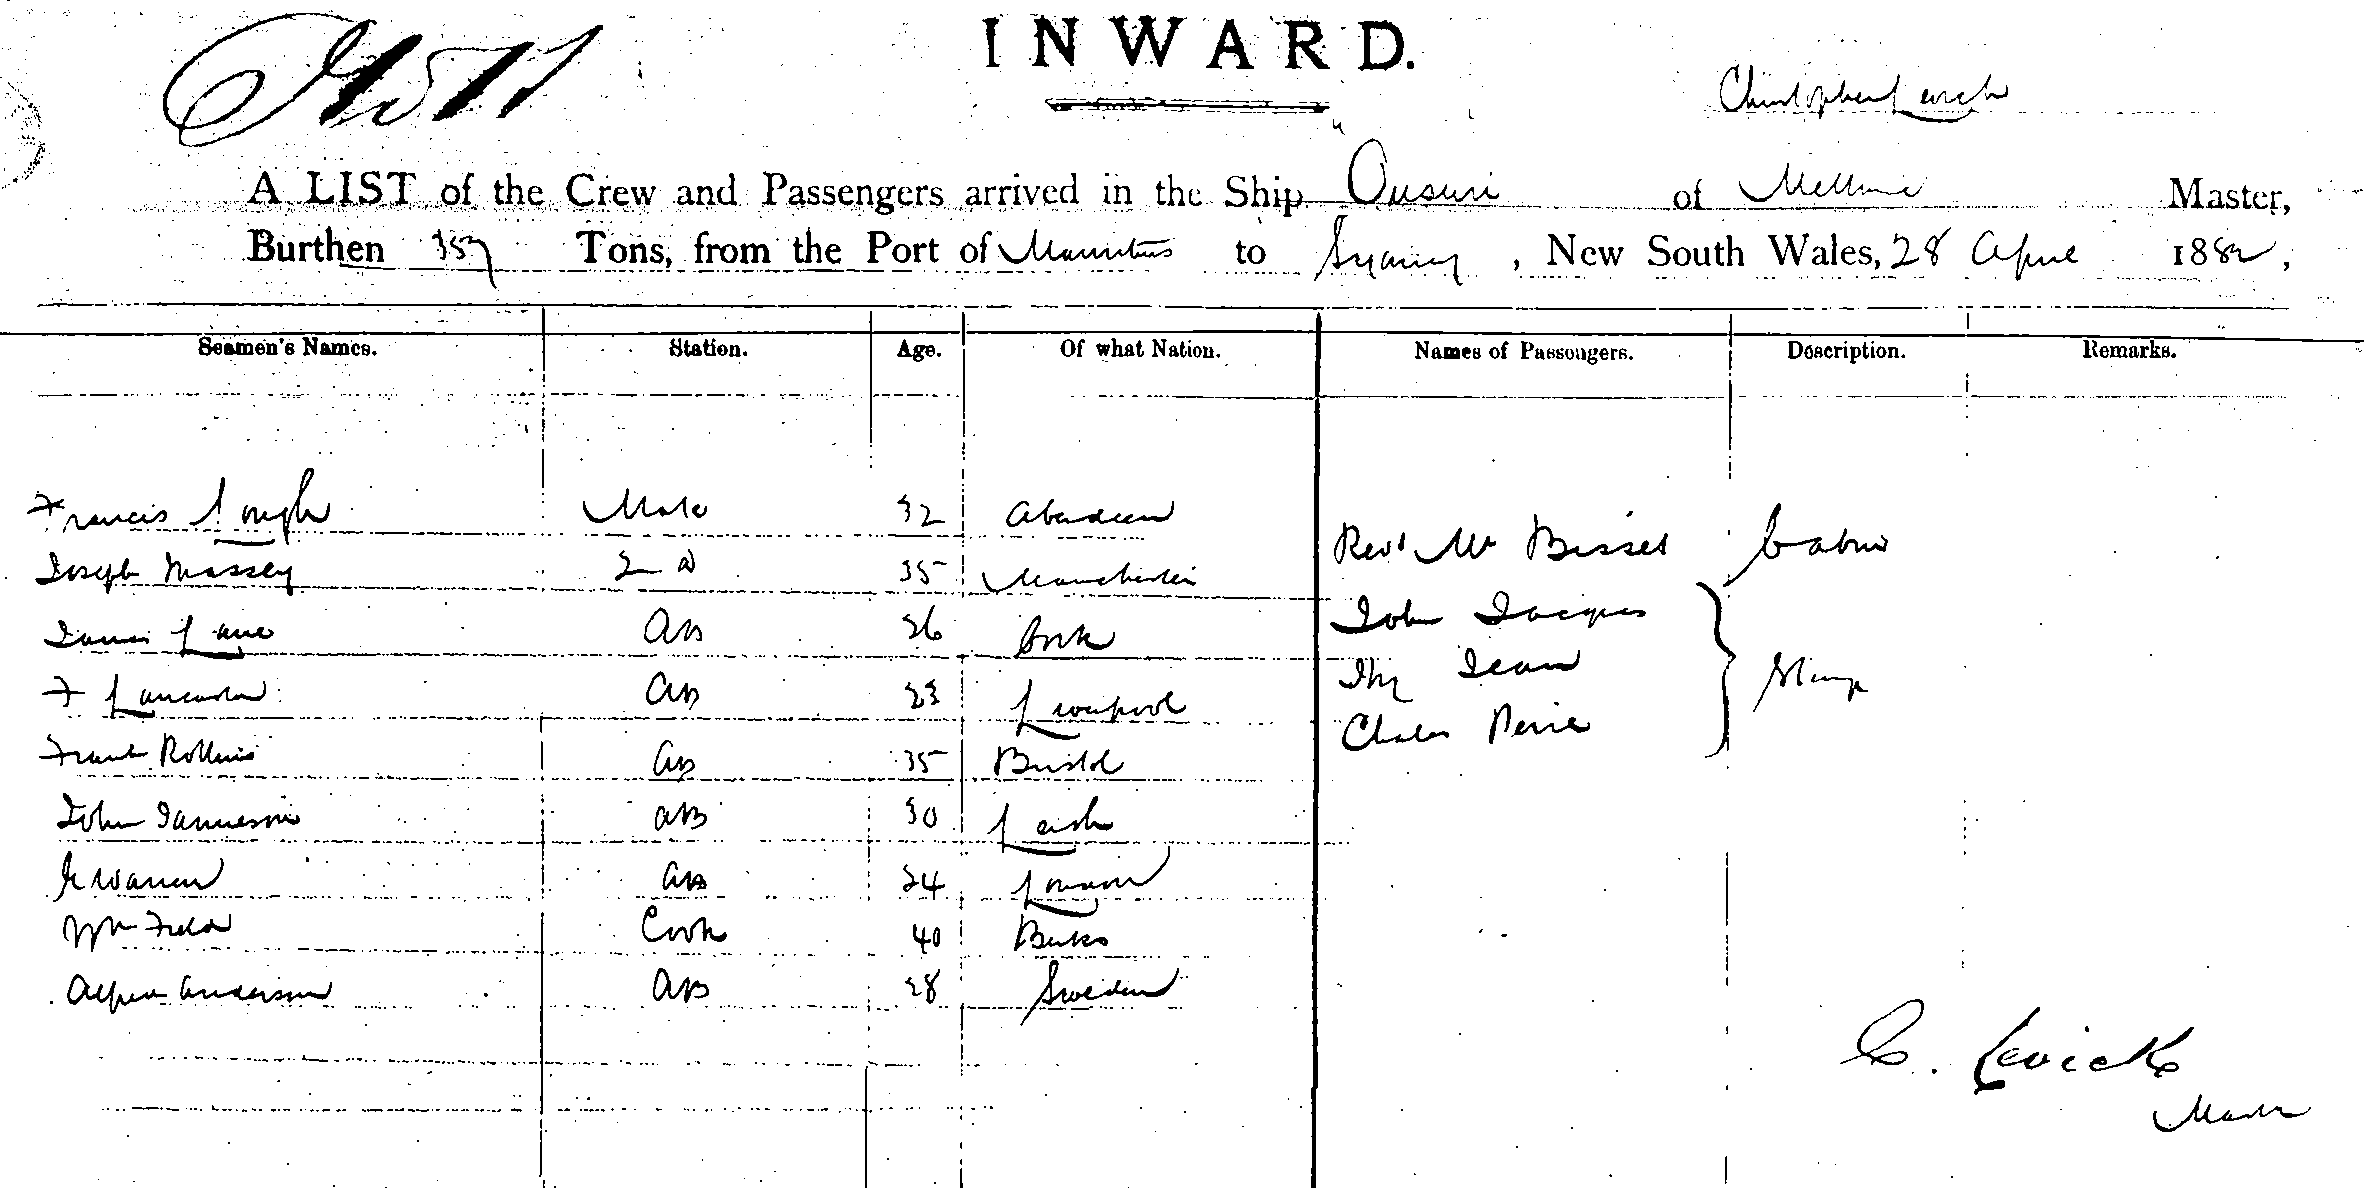 INWARD.
A LIST of the Crew and Passengers arrived in the Ship Ousuri of Melbourne Master,
Burthen 357 Tons, from the Port of Mauritius to Sydney, New South Wales, 28 April 1882,
Seamen's Names. Station. Age. Of what Nation. Names of Passengers. Description. Remarks.
Francis Mate 32 Aberdeen
Revd Mr Bisset Cabin
Joseph Massey 2 D 35 Manchester
John Jacques
James Lane AB 26 Cork
Thy Jean
F Lancaster AB 23 Liverpool
Charles
Frank Rollins AB 35 Bristol
John Jamieson AB 30 Leith
Warren AB 24 London
Wm Field Cook 40 Berks
Alfred Anderson AB 28 Sweden
C. Levick
Master